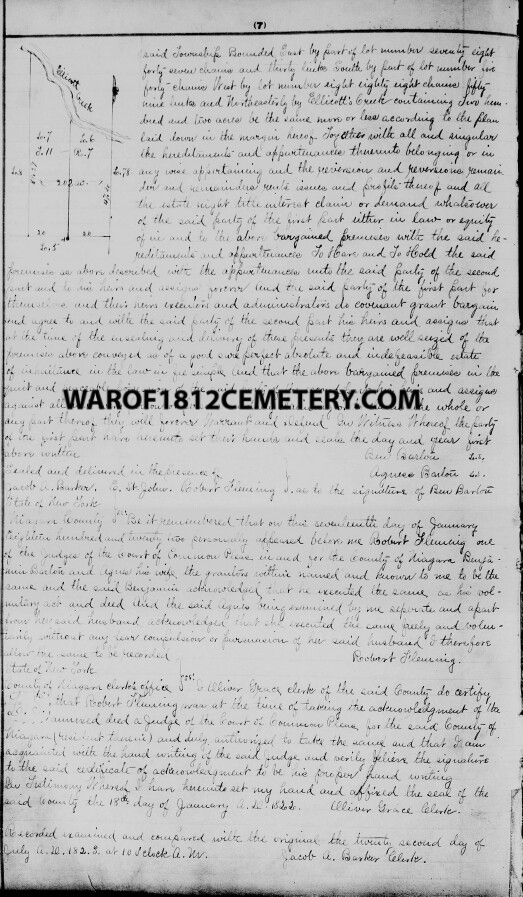 (7)
said Township Bounded East by part of lot number seventy eight
forty seven chains and thirty links South by part of lot number five
forty chains West by lot number eight eighty eight chains fifty
nine links and Northeasterly by Ellicott's Creek containing Two hun-
dred and two acres be the same more or less according to the plan
laid down in the margin hereof. Together with all and singular
the hereditaments and appurtenances thereunto belonging or in
any wise appertaining and the reversion and reversions remain
der and remainders rents issues and profits thereof and all
the estate right title interest claim or demand whatsoever
of the said party of the first part either in law or equity
of in and to the above bargained premises with the said he-
reditaments and appurtenances To Have and To Hold the said
premises as above described with the appurtenances unto the said party of the second
part and to his heirs and assigns forever And the said party of the first part for
themselves and their heirs executors and administrators do covenant grant bargain
and agree to and with the said party of the second part his heirs and assigns that
at the time of the ensealing and delivery of these presents they are well seized of the
premises above conveyed as of a good sure perfect absolute and indefeasible estate
of inheritance in the law in fee simple And that the above bargained premises in the
quiet and and assigns
against all the whole or
any part thereof they will forever Warrant and defend In Witness Whereof the party
of the first part have hereunto set their hands and seals the day and year first
above written Ben Barton L.S.
Sealed and delivered in the presence of Agness Barton L.S.
Jacob A. Barker. St. John. Robert Fleming as to the signature of Ben Barton
State of New York
Niagara County ss. Be it remembered that on this seventeenth day of January
Eighteen hundred and twenty two personally appeared before me Robert Fleming one
of the Judges of the Court of Common Pleas in and for the County of Niagara Benja-
min Barton and Agnes his wife the grantors within named and known to me to be the
same and the said Benjamin acknowledged that he executed the same as his vol-
untary act and deed And the said Agnes being examined by me seperate and apart
from her said husband acknowledged that she executed the same freely and volun-
tarily without any fear compulsion or persuasion of her said husband I therefore
allow the same to be recorded
Robert Fleming.
State of New York
County of Niagara Clerk's office ss. I Olliver Grace clerk of the said County do certify
that Robert Fleming was at the time of taking the acknowledgment of the
annexed deed a Judge of the Court of Common Pleas for the said County of
Niagara (resident therein) and duly authorized to take the same and that I am
acquainted with the hand writing of the said judge and verily believe the signature
to the said certificate of acknowledgment to be his proper hand writing
In Testimony Whereof I have hereunto set my hand and affixed the seal of the
said County the 18th day of January A.D. 1822. Olliver Grace Clerk.
Recorded examined and compared with the original the twenty second day of
July A.D. 1823. at 10 o'clock A.M. Jacob A. Barker Clerk.
Ellicott Creek
L.8
L.78
202 ac.
Lo.5
WAROF1812CEMETERY.COM